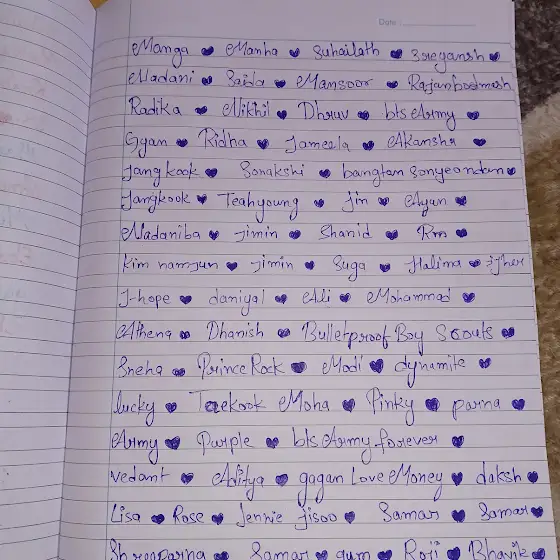 Date:
Manga ♥ Manha ♥ Suhailath ♥ Sreyansh ♥
Madani ♥ Saida ♥ Mansoor ♥ Rajanbodmash
Radika ♥ Nikhil ♥ Dhruv ♥ bts Army ♥
Gyan ♥ Ridha ♥ Jameela ♥ Akansha ♥
Jangkook ♥ Sonakshi ♥ bangtan Sonyeondan ♥
Jangkook ♥ Teahyoung ♥ Jin ♥ Ayan ♥
Madaniba ♥ Jimin ♥ Shanid ♥ Rm ♥
Kim namjun ♥ Jimin ♥ Suga ♥ Halima ♥
J-hope ♥ daniyal ♥ Ali ♥ Mohammad ♥
Athena ♥ Dhanish ♥ Bulletproof Boy Scouts ♥
Sneha ♥ Prince Rock ♥ Modi ♥ dynamite ♥
lucky ♥ Taekook Moha ♥ Pinky ♥ parna ♥
Army ♥ Purple ♥ bts Army forever ♥
Vedant ♥ Aditya ♥ gagan Love Money ♥ daksh ♥
Lisa ♥ Rose ♥ Jennie Jisoo ♥ Samar ♥ Samar ♥
Shreeparna ♥ Samar ♥ gum ♥ Roji ♥ Bhavik ♥